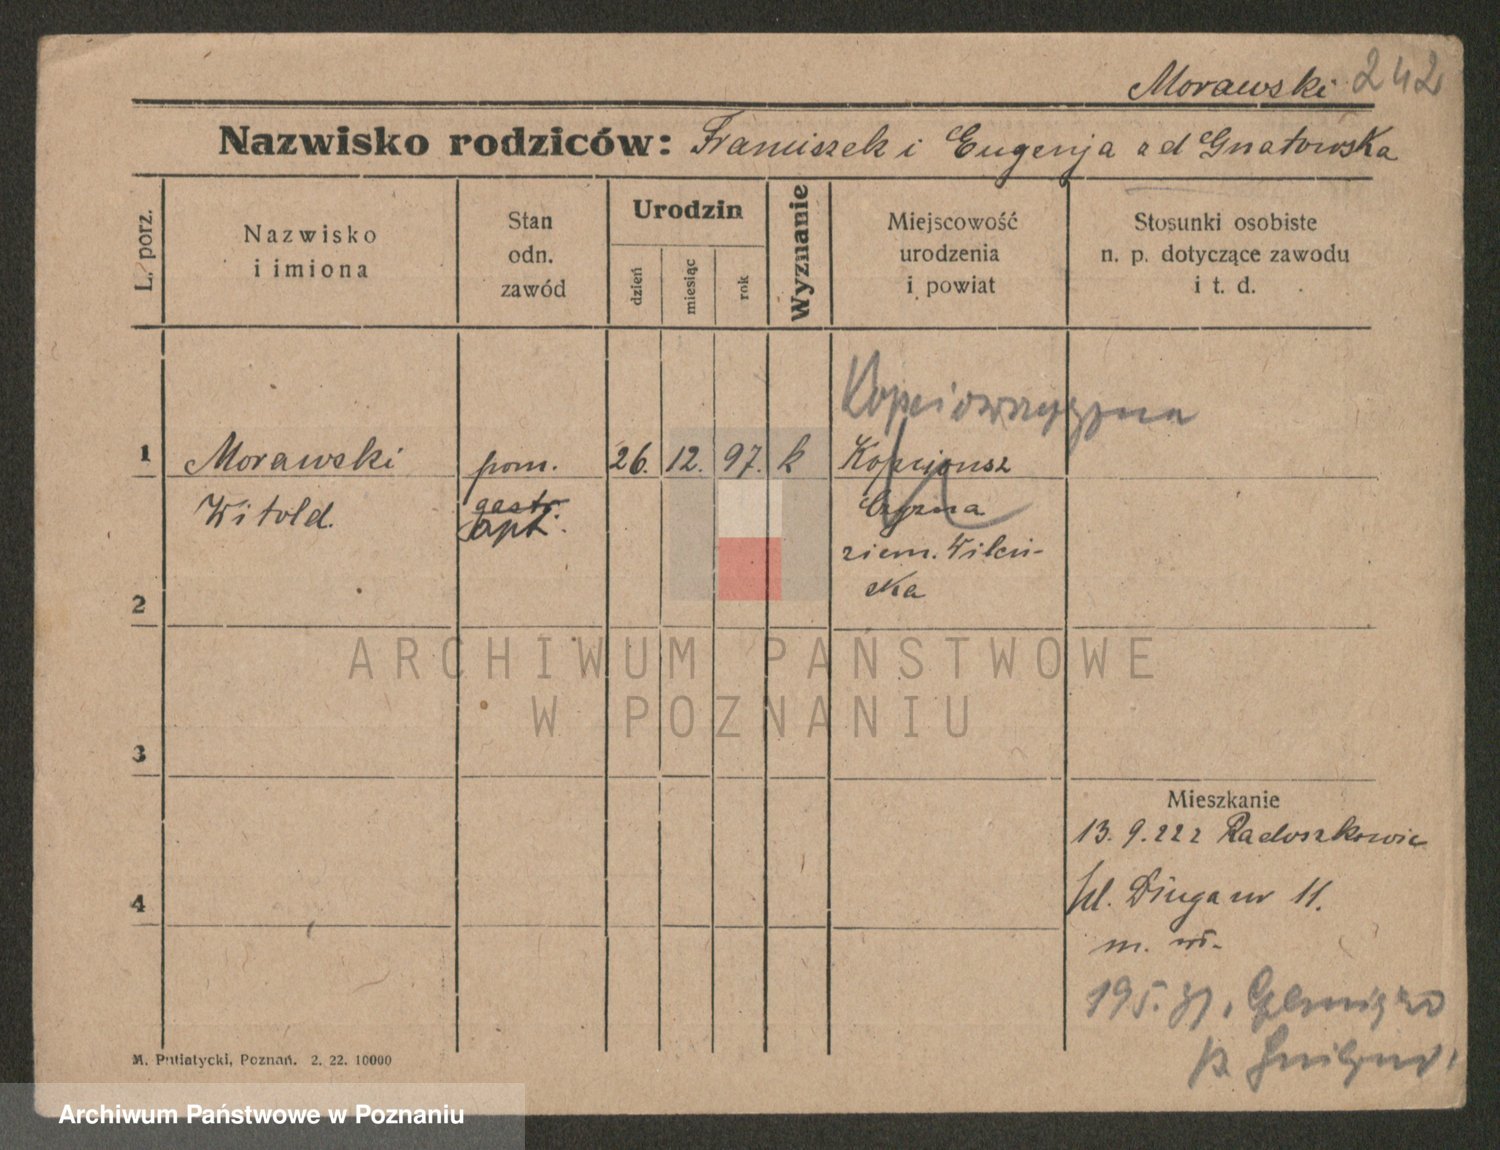 Morawski 242
Nazwisko rodziców: Franciszek i Eugenja od Gnatowska
L. porz.
Nazwisko
i imiona
Stan
odn.
zawód
Urodzin
dzień
miesiąc
rok
Wyznanie
Miejscowość
urodzenia
i powiat
Stosunki osobiste
n. p. dotyczące zawodu
i t. d.
1
Morawski
Witold.
pom.
gastr.
apt.
26.
12.
97.
k
Kopciousz
czyzna
ziem. Wileń-
ska
2
3
4
Mieszkanie
13. 9. 22 z Radoszkowic
ul. Długa nr 11.
195.
M. Putiatycki, Poznań. 2. 22. 10000
ARCHIWUM PAŃSTWOWE
W POZNANIU
Archiwum Państwowe w Poznaniu